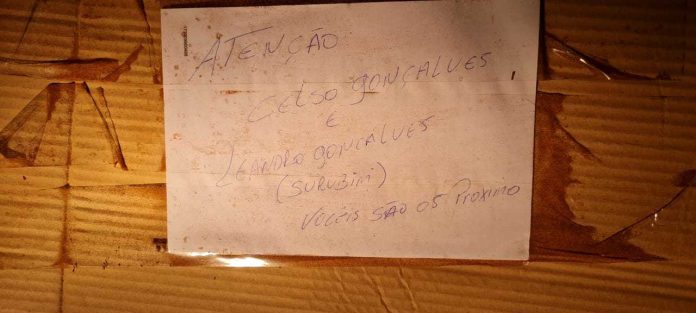 ATENÇÃO
CELSO GONÇALVES
E
LEANDRO GONCALVES
(SURUBIM)
VOCEIS SÃO OS PROXIMO